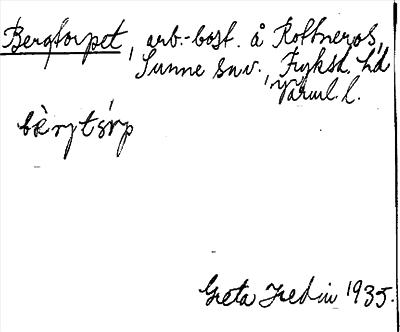 Bergtorpet, arb.-bost. å Rottneros,
Sunne snv., Fryksd. hd
Värml. l.
bæ̀rjtórp
Greta Hedin 1935.